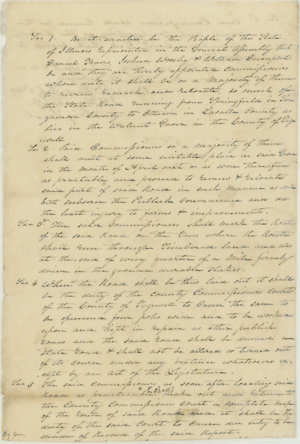 Sec 1 Be it enacted by the People of the State
of Illinois represented in the General Assembly that
Daniel Joshua & William
be and they are hereby appointed Commissioners
whose duty it shall be or a Majority of them
to review remark and relocate so much of
the State Road running from Springfield in San
gamon County to Ottawa in Lasalle County as
lies in the Walnut Grove in the County of
Sec 2 Said Commissioners or a majority of them
shall meet at some suitable place in said Grove
in the month of April next or as soon thereafter
as practicable and proceed to review & relocate
said part of said Road in such manner as will
best subserve the Publick Convenience and do
the least injury to farms & improvements.
Sec 3 The said Commissioners shall mark the Route
of the said Road in the Case where the Route
shall run through Timbered land and set
at the end of every quarter of a Mile firmly
driven in the ground durable Stakes.
Sec 4 When the Road shall be thus laid out it shall
be the duty of the County Commissioners Court
of the County of to Cause the same to
be opened four poles wide and to be worked
upon and kept in repair as other publick
roads and the same Road shall be deemed a
State Road & shall not be altered or turned out
of its course under any pretence whatsoever ex
cept by an act of the Legislature.
Sec 5 The said Commissioners as soon after locating said
Road as practicable make out and return to
the County Commissioners Court a complete map
of the route of said Road and it shall be the
duty of the said Court to Cause an entry to be
made of Record of the said Report.